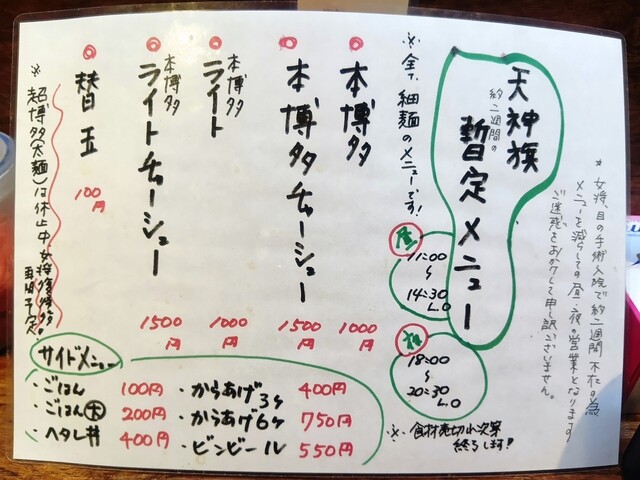 ＊女将、目の手術入院で約二週間不在の為
メニューを減らしての昼・夜の営業となります
ご迷惑をおかけして申し訳ございません。
天神旗
約二週間の
暫定メニュー
※全て細麺のメニューです!
昼
11:00
〜
14:30
L.O
夜
18:00
〜
20:30
L.O
※食材売切れ次第
終了します!!
◎本博多
1000
円
◎本博多チャーシュー
1500
円
◎本博多
ライト
1000
円
◎本博多
ライトチャーシュー
1500
円
◎替玉
100
円
※超博多(太麺)は休止中、女将復帰後
再開予定。
サイドメニュー
・ごはん 100円
・ごはん大 200円
・ヘタレ丼 400円
・からあげ3ヶ 400円
・からあげ6ヶ 750円
・ビンビール 550円